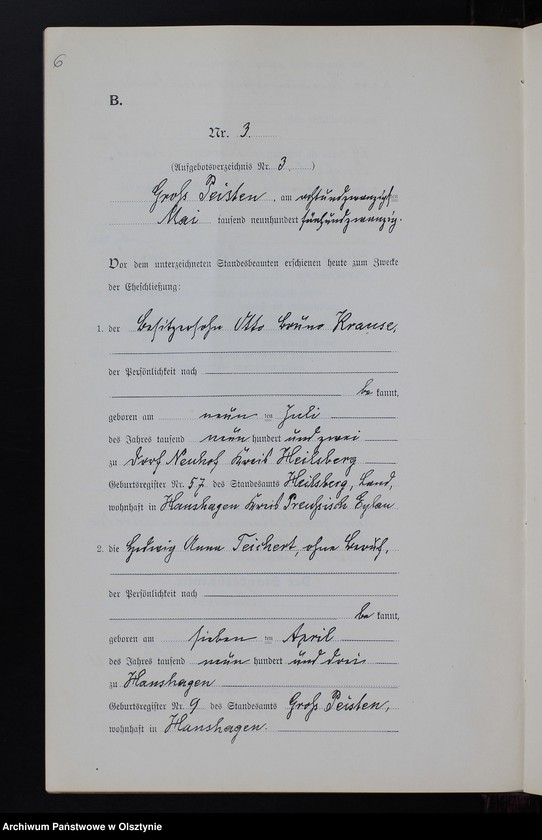 6
B.
Nr. 3.
(Aufgebotsverzeichnis Nr. 3.)
Groß Peisten, am achtundzwanzigsten
Mai tausend neunhundert fünfundzwanzig.
Vor dem unterzeichneten Standesbeamten erschienen heute zum Zwecke
der Eheschließung:
1. der Besitzersohn Otto Bruno Krause,
der Persönlichkeit nach
be kannt,
geboren am neun ten Juli
des Jahres tausend neun hundert und zwei
zu Dorf Neuhof Kreis Heilsberg
Geburtsregister Nr. 57 des Standesamts Heilsberg, Land,
wohnhaft in Hanshagen Kreis Preußisch Eylau
2. die Hedwig Anna Teichert, ohne Beruf,
der Persönlichkeit nach
be kannt,
geboren am sieben ten April
des Jahres tausend neun hundert und drei
zu Hanshagen
Geburtsregister Nr. 9 des Standesamts Groß Peisten,
wohnhaft in Hanshagen.
Archiwum Państwowe w Olsztynie